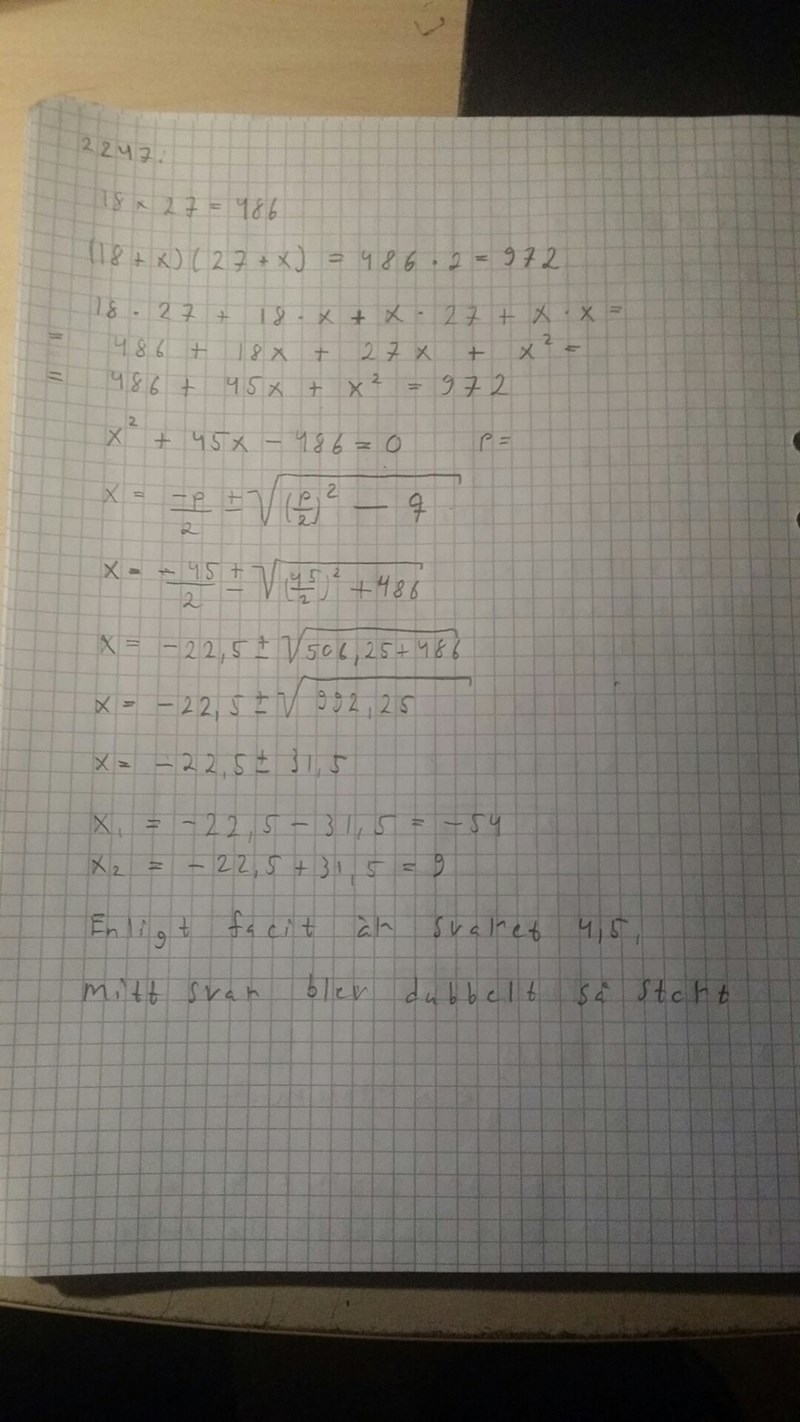 2247.
18 × 27 = 486
(18 + x)(27 + x) = 486 · 2 = 972
18 · 27 + 18 · x + x · 27 + x · x =
= 486 + 18x + 27x + x² =
= 486 + 45x + x² = 972
x² + 45x − 486 = 0 P =
x = −P/2 ± √((P/2)² − q)
x = −45/2 ± √((45/2)² + 486)
x = −22,5 ± √(506,25 + 486)
x = −22,5 ± √(992,25)
x = −22,5 ± 31,5
x₁ = −22,5 − 31,5 = −54
x₂ = −22,5 + 31,5 = 9
Enligt facit är svaret 4,5,
mitt svar blev dubbelt så stort